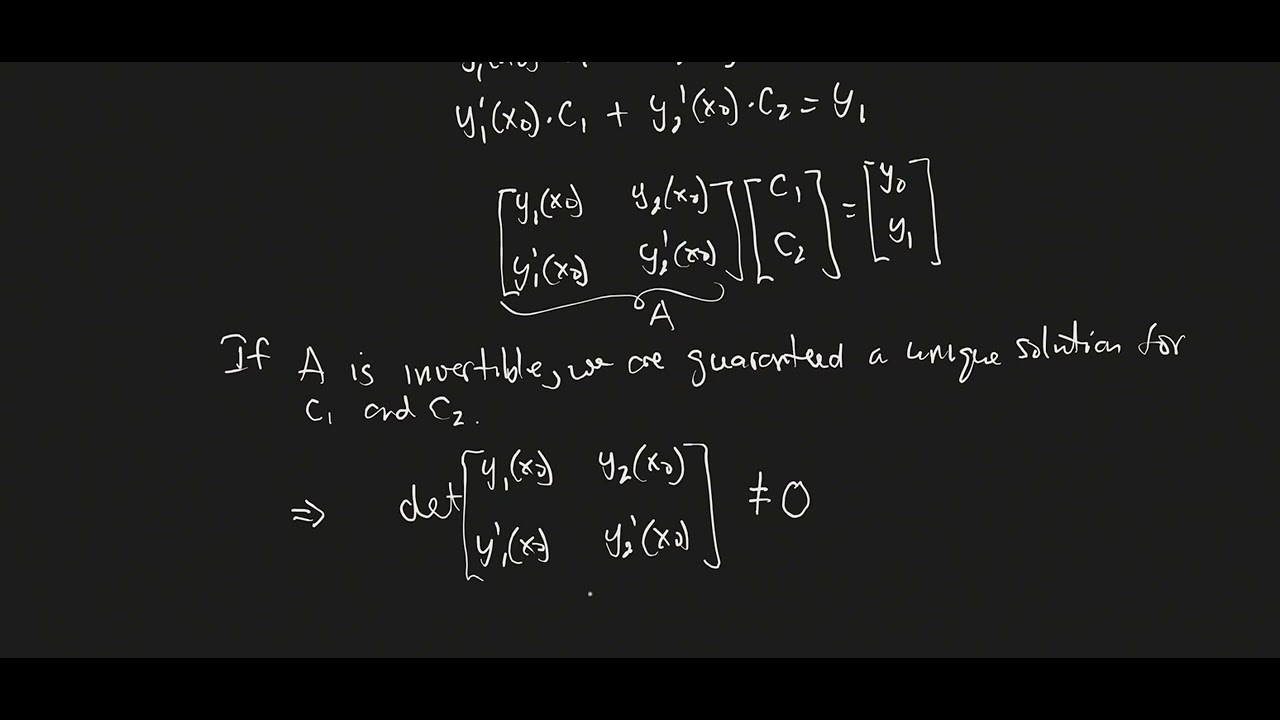 y₁'(x₀)·C₁ + y₂'(x₀)·C₂ = y₁
[y₁(x₀) y₂(x₀)] [C₁] = [y₀]
[y₁'(x₀) y₂'(x₀)] [C₂] [y₁]
A
If A is invertible, we are guaranteed a unique solution for
C₁ and C₂.
⇒ det [y₁(x₀) y₂(x₀)] ≠ 0
[y₁'(x₀) y₂'(x₀)]